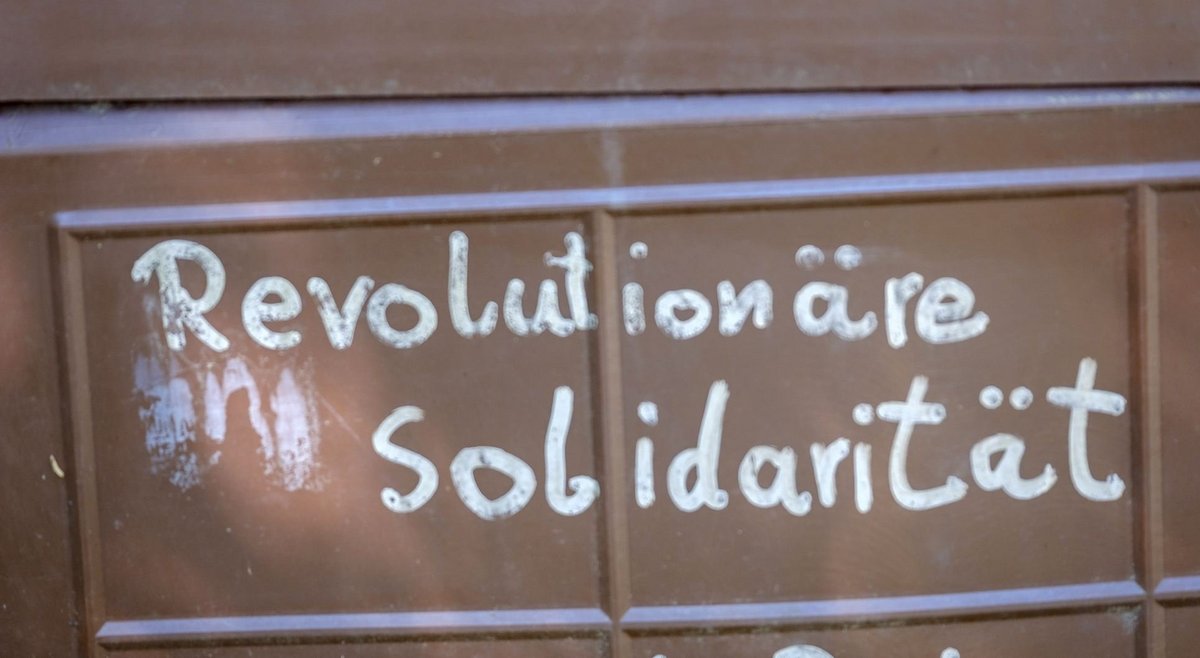 Revolutionäre
Solidarität